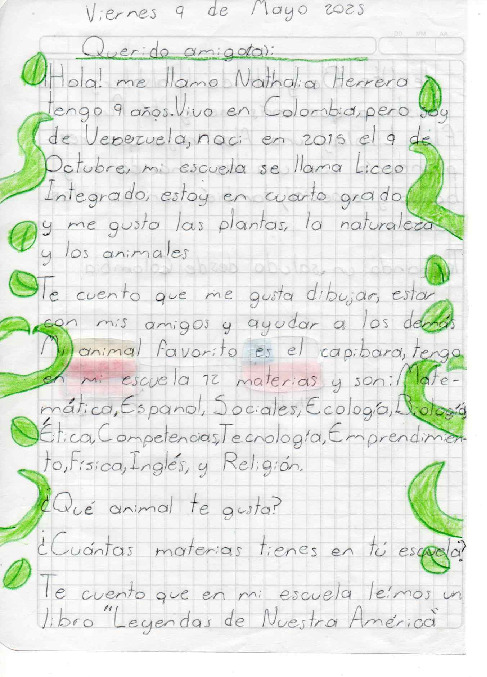 Viernes 9 de Mayo 2025
Querido amigo(a):
¡Hola! me llamo Nathalia Herrera
tengo 9 años. Vivo en Colombia, pero soy
de Venezuela, naci en 2015 el 9 de
Octubre, mi escuela se llama Liceo
Integrado, estoy en cuarto grado
y me gusta las plantas, la naturaleza
y los animales
Te cuento que me gusta dibujar, estar
con mis amigos y ayudar a los demás
Mi animal favorito es el capibara, tengo
en mi escuela 12 materias y son: Mate-
mática, Español, Sociales, Ecología, Biología
Ética, Competencias, Tecnología, Emprendimien-
to, Física, Inglés, y Religión.
¿Qué animal te gusta?
¿Cuántas materias tienes en tú escuela?
Te cuento que en mi escuela leímos un
libro "Leyendas de Nuestra América"